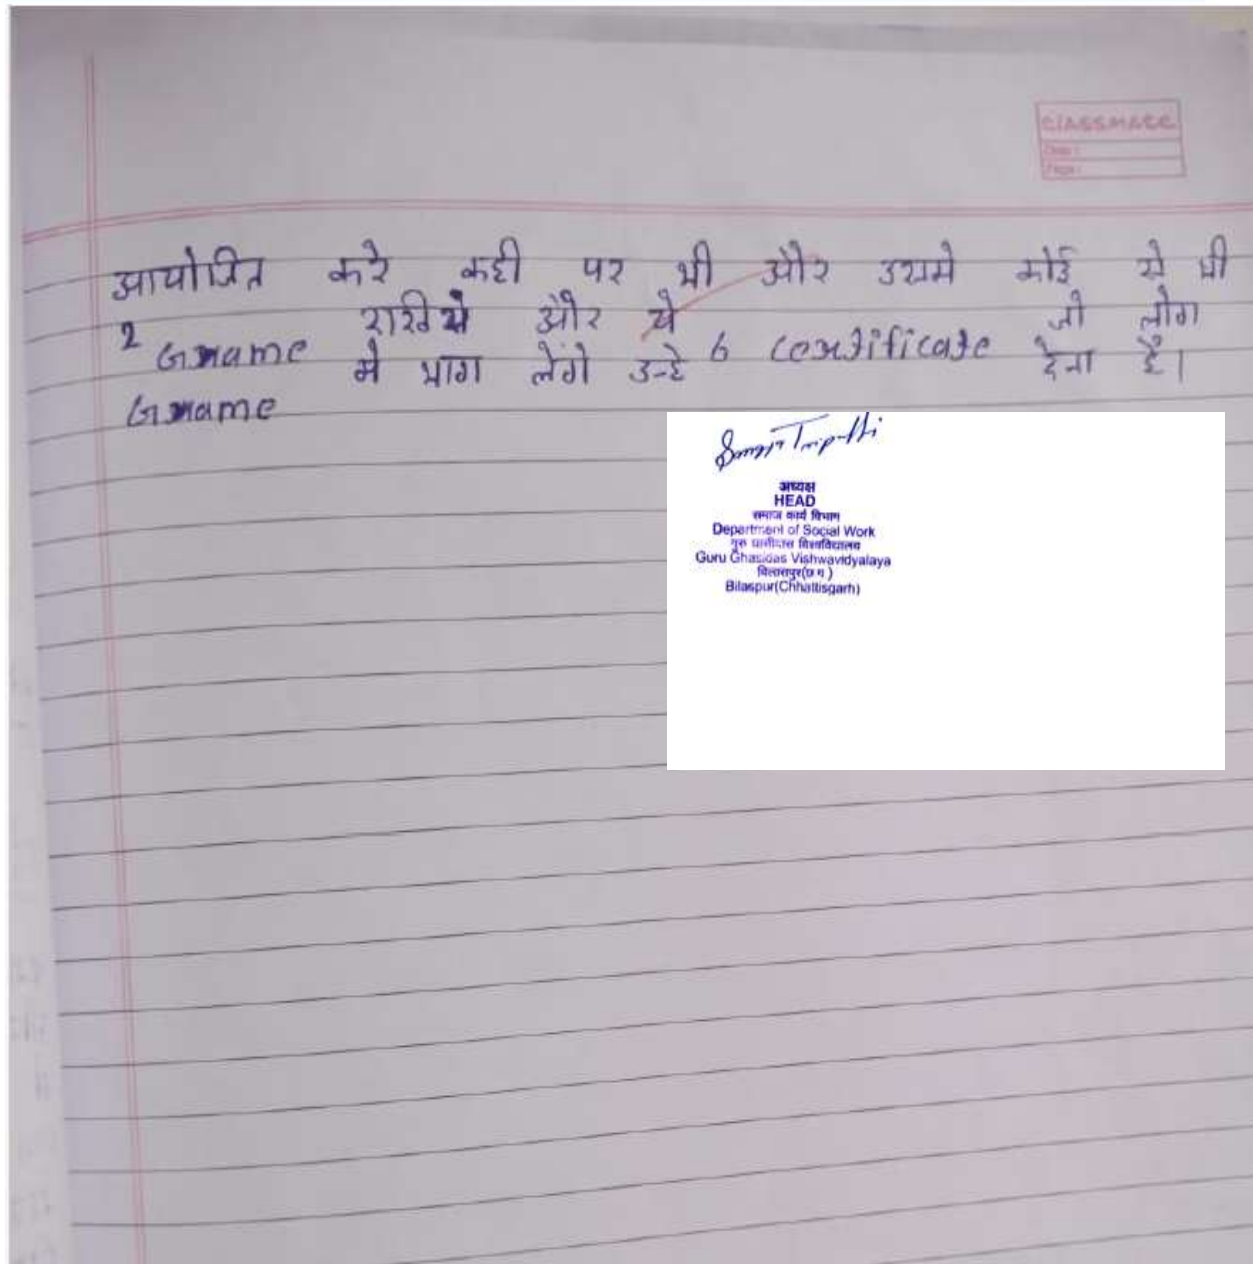 CLASSMATE
Date :
Page :
आयोजित करे कही पर भी और उसमे कोई से भी
2 Grame राखे और ये 6 certificate जो लोग
Grame मे भाग लेंगे उन्हे देना है।
अध्यक्ष
HEAD
समाज कार्य विभाग
Department of Social Work
गुरु घासीदास विश्वविद्यालय
Guru Ghasidas Vishwavidyalaya
बिलासपुर(छ ग )
Bilaspur(Chhattisgarh)